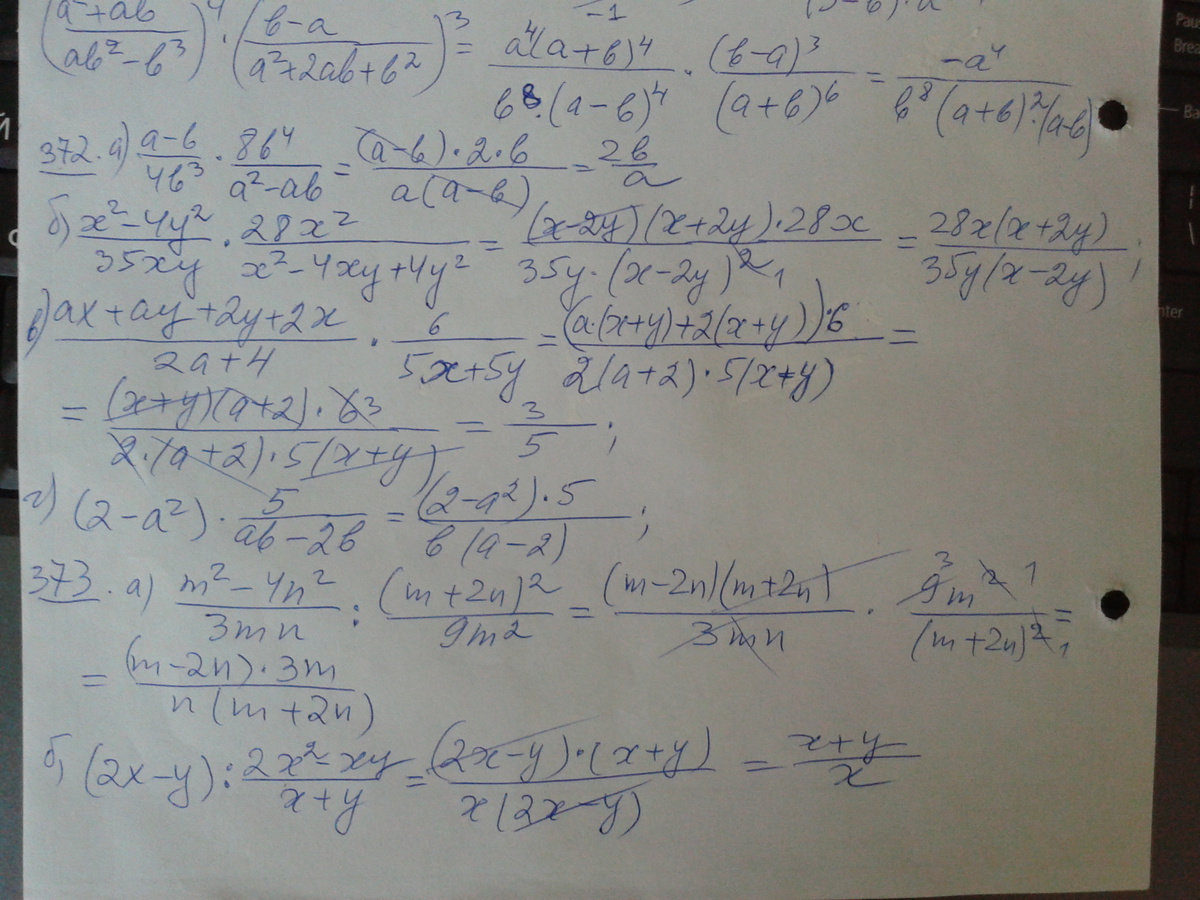 (a²+ab / ab²-b³)⁴ · (b-a / a²+2ab+b²)³ = a⁴(a+b)⁴ / b⁸·(a-b)⁴ · (b-a)³ / (a+b)⁶ = -a⁴ / b⁸(a+b)²·(a-b)
-1
372. а) a-b / 4b³ · 8b⁴ / a²-ab = (a-b)·2·b / a(a-b) = 2b / a
б) x²-4y² / 35xy · 28x² / x²-4xy+4y² = (x-2y)(x+2y)·28x / 35y·(x-2y)² 1 = 28x(x+2y) / 35y(x-2y) ;
в) ax+ay+2y+2x / 2a+4 · 6 / 5x+5y = (a·(x+y)+2(x+y))·6 / 2(a+2)·5(x+y) =
= (x+y)(a+2)·6 3 / 2·(a+2)·5(x+y) = 3 / 5 ;
г) (2-a²) · 5 / ab-2b = (2-a²)·5 / b(a-2) ;
373. а) m²-4n² / 3mn : (m+2n)² / 9m² = (m-2n)(m+2n) / 3mn · 3 9m² 1 / (m+2n)² 1 =
= (m-2n)·3m / n(m+2n)
б) (2x-y) : 2x²-xy / x+y = (2x-y)·(x+y) / x(2x-y) = x+y / x